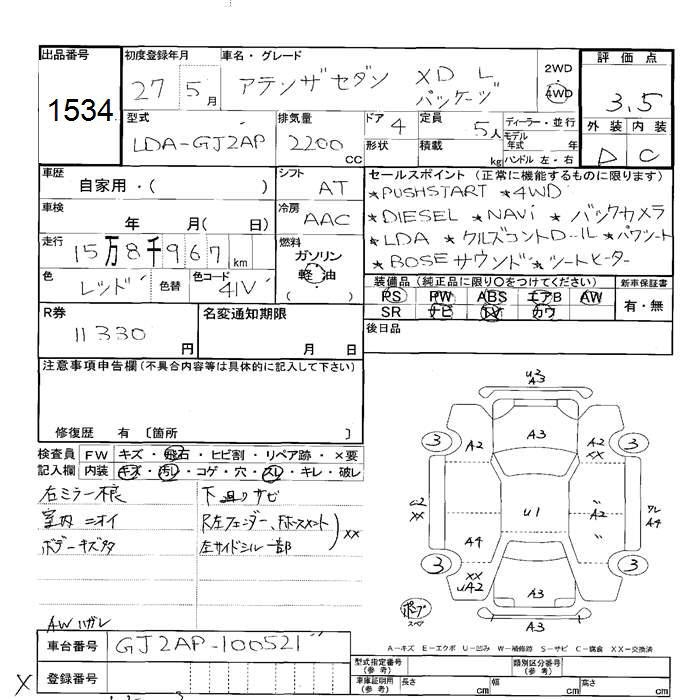 出品番号 初度登録年月 車名・グレード 評価点
1534 27 5月 アテンザセダン XD L パッケージ 2WD 4WD 3.5
型式 排気量 ドア 4 定員 5人 ディーラー・並行 外装 内装
LDA-GJ2AP 2200 CC 形状 積載 kg モデル年式 年 ハンドル 左・右 D C
車歴 自家用・( ) シフト AT セールスポイント (正常に機能するものに限ります)
★PUSHSTART ★4WD
車検 年 月( 日) 冷房 AAC ★DIESEL ★NAVi ★バックカメラ
走行 15万8千967km 燃料 ガソリン 軽油 ( ) ★LDA ★クルズコントロ-ル ★パワシート
★BOSEサウンド ★シートヒーター
色 レッド 色替 色コード 41V 装備品 (純正品に限り○をつけてください) 新車保証書
PS PW ABS エアB AW 有・無
SR ナビ TV カワ
R券 11330円 名変通知期限 月 日 後日品
注意事項申告欄 (不具合内容等は具体的に記入して下さい)
修復歴 有 〔箇所 〕 無
検査員 FW キズ・飛石・ヒビ割・リペア跡・×要
記入欄 内装 キズ・汚レ・コゲ・穴・スレ・キレ・破レ
右ミラー不良 下廻りサビ
室内ニオイ R左フェンダー、Fホースメント
ボデーキズ多 左サイドシル一部 XX
AWハガレ
U3 A3
3 A2 A3 A2 XX 3
U2 XX U1 A2 クレ A4
A4
3 XX UA2 A3 3
A3
A-キズ E-エクボ U-凹み W-補修跡 S-サビ C-腐食 XX-交換済
車台番号 GJ2AP-100521 型式指定番号 (参考) 類別区分番号 (参考)
X 登録番号 車庫証明用 (参考) 長さ cm 幅 cm 高さ cm